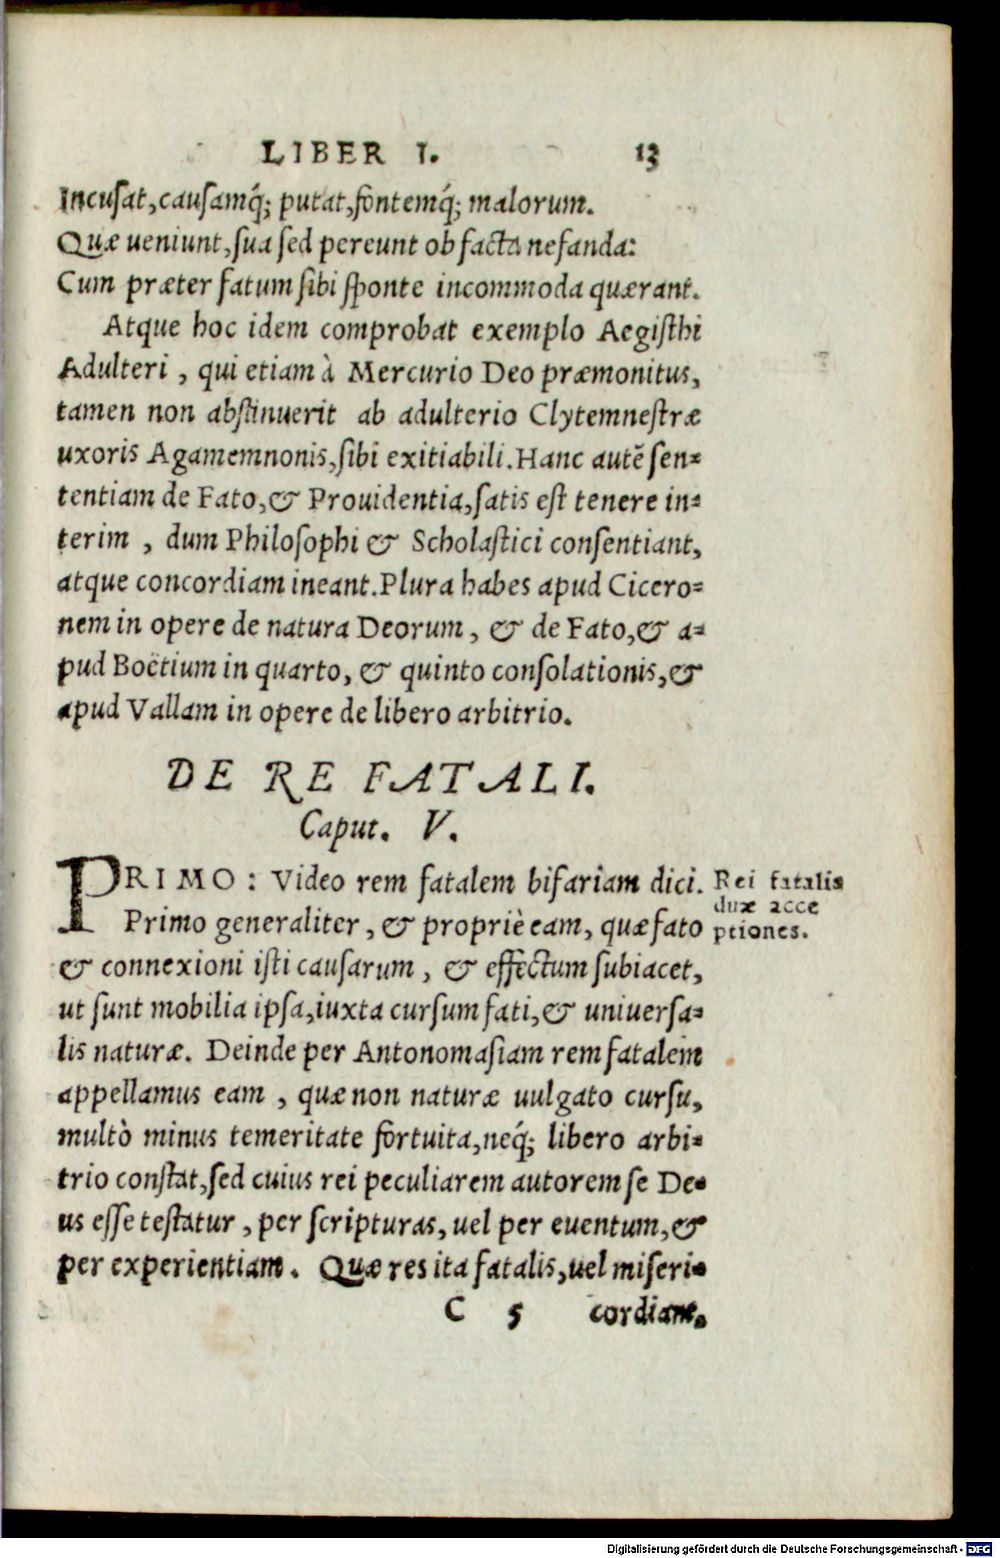 LIBER I. 13
Incusat, causamq́; putat, fontemq́; malorum.
Quæ ueniunt, sua sed pereunt ob facta nefanda:
Cum præter fatum sibi sponte incommoda quærant.
Atque hoc idem comprobat exemplo Aegisthi
Adulteri, qui etiam à Mercurio Deo præmonitus,
tamen non abstinuerit ab adulterio Clytemnestræ
uxoris Agamemnonis, sibi exitiabili. Hanc autē sen-
tentiam de Fato, & Prouidentia, satis est tenere in-
terim, dum Philosophi & Scholastici consentiant,
atque concordiam ineant. Plura habes apud Cicero-
nem in opere de natura Deorum, & de Fato, & a-
pud Boëtium in quarto, & quinto consolationis, &
apud Vallam in opere de libero arbitrio.
DE RE FATALI.
Caput. V.
PRIMO: Video rem fatalem bifariam dici.
Rei fatalis
duæ acce
ptiones.
Primo generaliter, & propriè eam, quæ fato
& connexioni isti causarum, & effectum subiacet,
ut sunt mobilia ipsa, iuxta cursum fati, & uniuersa-
lis naturæ. Deinde per Antonomasiam rem fatalem
appellamus eam, quæ non naturæ uulgato cursu,
multò minus temeritate fortuita, neq́; libero arbi-
trio constat, sed cuius rei peculiarem autorem se De-
us esse testatur, per scripturas, uel per euentum, &
per experientiam. Quæ res ita fatalis, uel miseri-
C 5 cordiam.
Digitalisierung gefördert durch die Deutsche Forschungsgemeinschaft - DFG